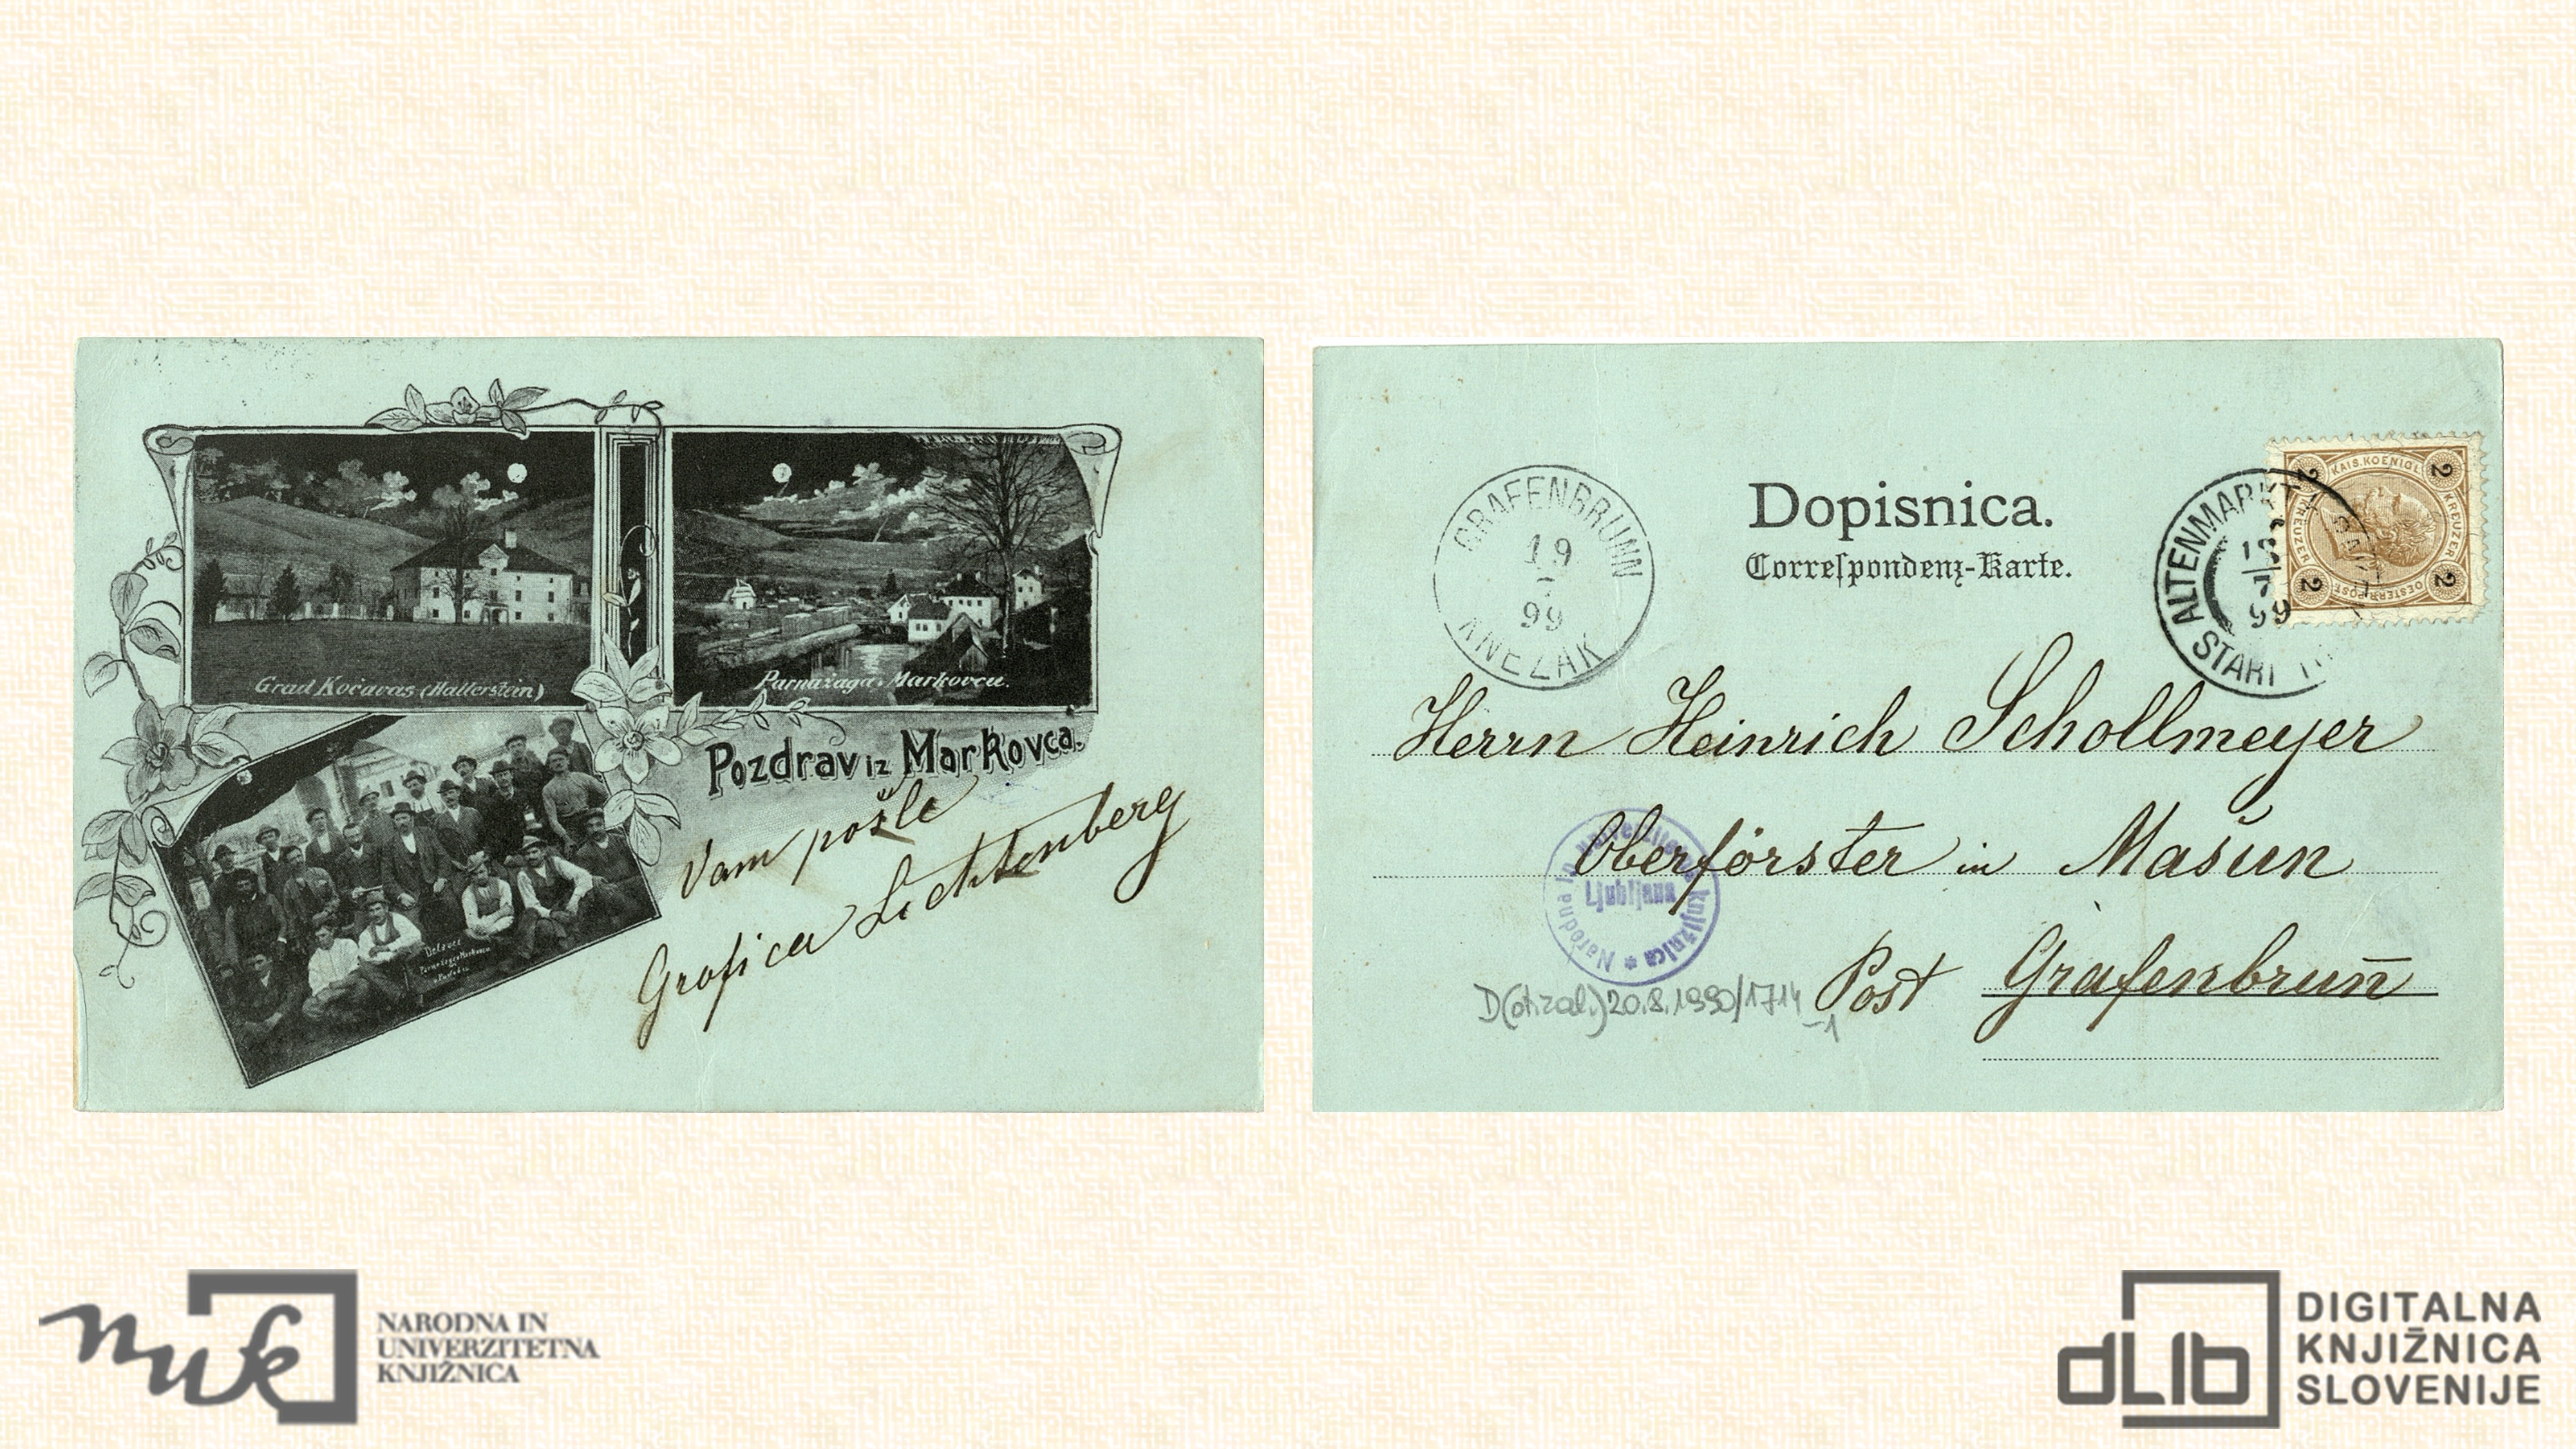 Grad Kočavas (Hallerstein)
Parnažaga Markovcu.
Pozdrav iz Markovca.
Vam pošle
Grofica Lichtenberg
Delavci
GRAFENBRUNN
19
7
99
KNEŽAK
Dopisnica.
Correſpondenz-Karte.
ALTENMARKT
99
STARI
KAIS. KOENIGL.
OESTERR. POST
KREUZER
KREUZER
2
2
2
2
Herrn Heinrich Schollmeyer
Oberförster in Mašun
Post Grafenbrun̄
Narodna in univerzitetna knjižnica
Ljubljana
D(ot.zal.)20.8.1990/1714
-1
nuk
NARODNA IN
UNIVERZITETNA
KNJIŽNICA
dLIb
DIGITALNA
KNJIŽNICA
SLOVENIJE